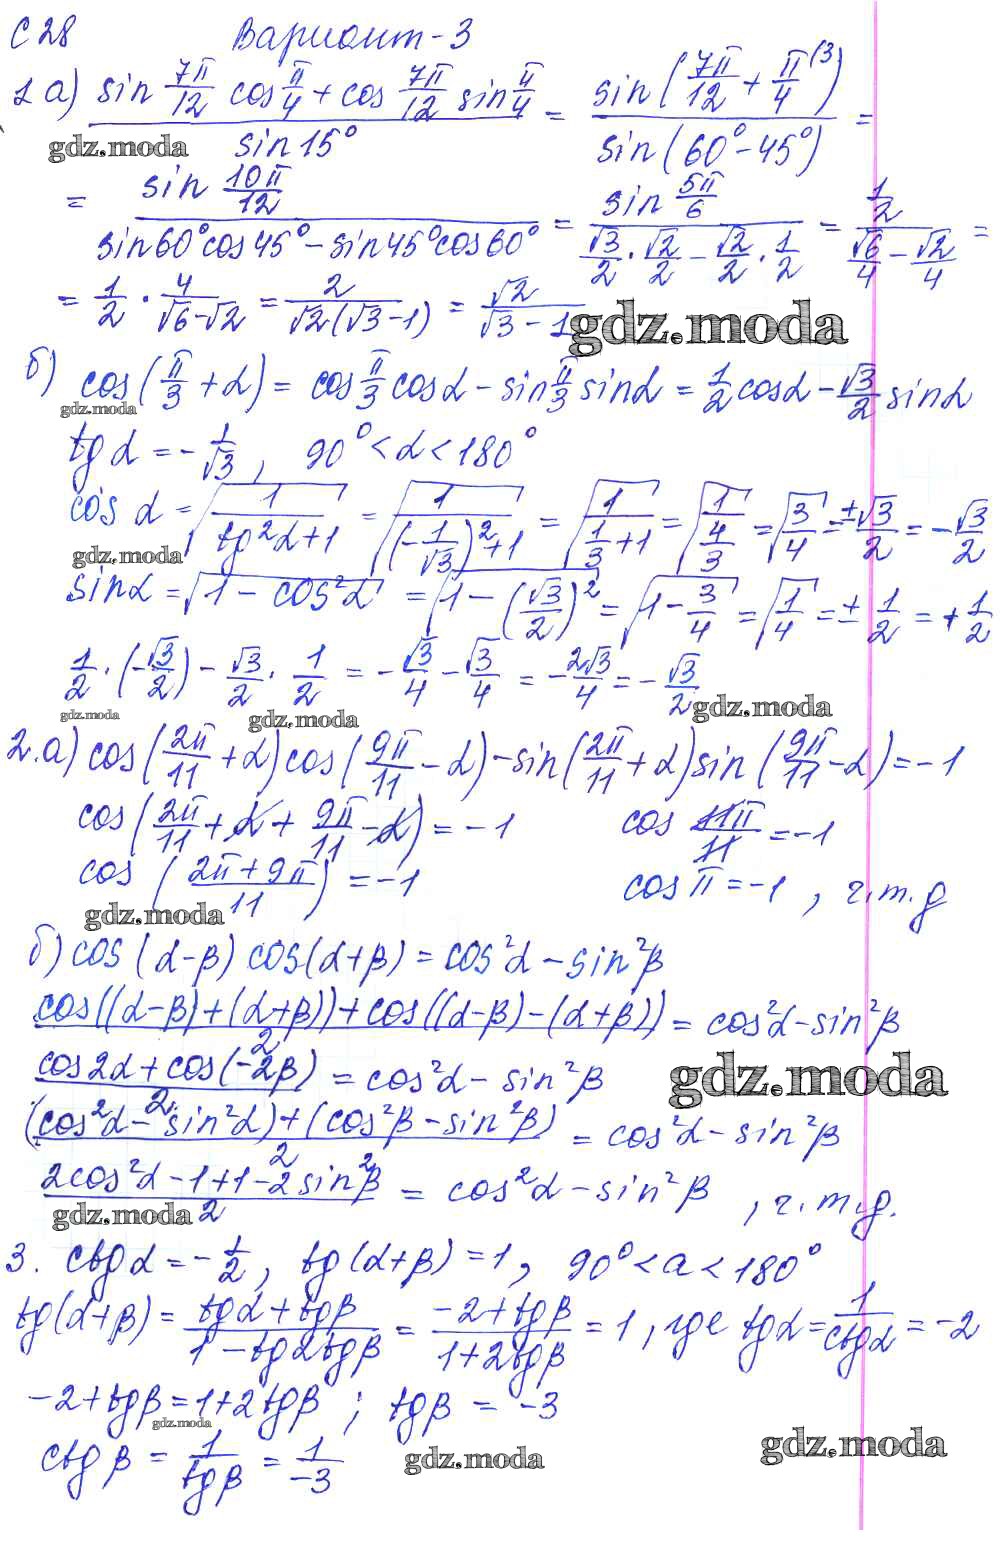 С 28 Вариант-3
1 а) (sin 7π/12 cos π/4 + cos 7π/12 sin π/4)/(sin 15°) = (sin(7π/12 + π/4 (3))/(sin(60°-45°)) =
gdz.moda
= (sin 10π/12)/(sin60°cos45° - sin45°cos60°) = (sin 5π/6)/(√3/2 · √2/2 - √2/2 · 1/2) = (1/2)/(√6/4 - √2/4) =
= 1/2 · 4/(√6-√2) = 2/(√2(√3-1)) = √2/(√3-1)
gdz.moda
б) cos(π/3 + α) = cos π/3 cosα - sin π/3 sinα = 1/2 cosα - √3/2 sinα
gdz.moda
tg α = -1/√3, 90° < α < 180°
cos α = √(1/(tg²α+1)) = √(1/((-1/√3)²+1)) = √(1/(1/3+1)) = √(1/(4/3)) = √(3/4) = ±√3/2 = -√3/2
gdz.moda
sinα = √(1 - cos²α) = √(1-(√3/2)²) = √(1-3/4) = √(1/4) = ± 1/2 = +1/2
1/2 · (-√3/2) - √3/2 · 1/2 = -√3/4 - √3/4 = -2√3/4 = -√3/2
gdz.moda gdz.moda gdz.moda
2. а) cos(2π/11 + α) cos(9π/11 - α) - sin(2π/11 + α) sin(9π/11 - α) = -1
cos(2π/11 + α + 9π/11 - α) = -1 cos 11π/11 = -1
cos((2π+9π)/11) = -1 cos π = -1, ч.т.д
gdz.moda
б) cos(α-β) cos(α+β) = cos²α - sin²β
(cos((α-β)+(α+β)) + cos((α-β)-(α+β)))/2 = cos²α - sin²β
(cos2α + cos(-2β))/2 = cos²α - sin²β
gdz.moda
((cos²α - sin²α) + (cos²β - sin²β))/2 = cos²α - sin²β
(2cos²α - 1 + 1 - 2sin²β)/2 = cos²α - sin²β, ч.т.д.
gdz.moda
3. ctg α = -1/2, tg(α+β) = 1, 90° < a < 180°
tg(α+β) = (tgα + tgβ)/(1 - tgαtgβ) = (-2+tgβ)/(1+2tgβ) = 1, где tgα = 1/ctgα = -2
-2 + tgβ = 1 + 2tgβ ; tgβ = -3
gdz.moda
ctg β = 1/tgβ = 1/-3
gdz.moda gdz.moda